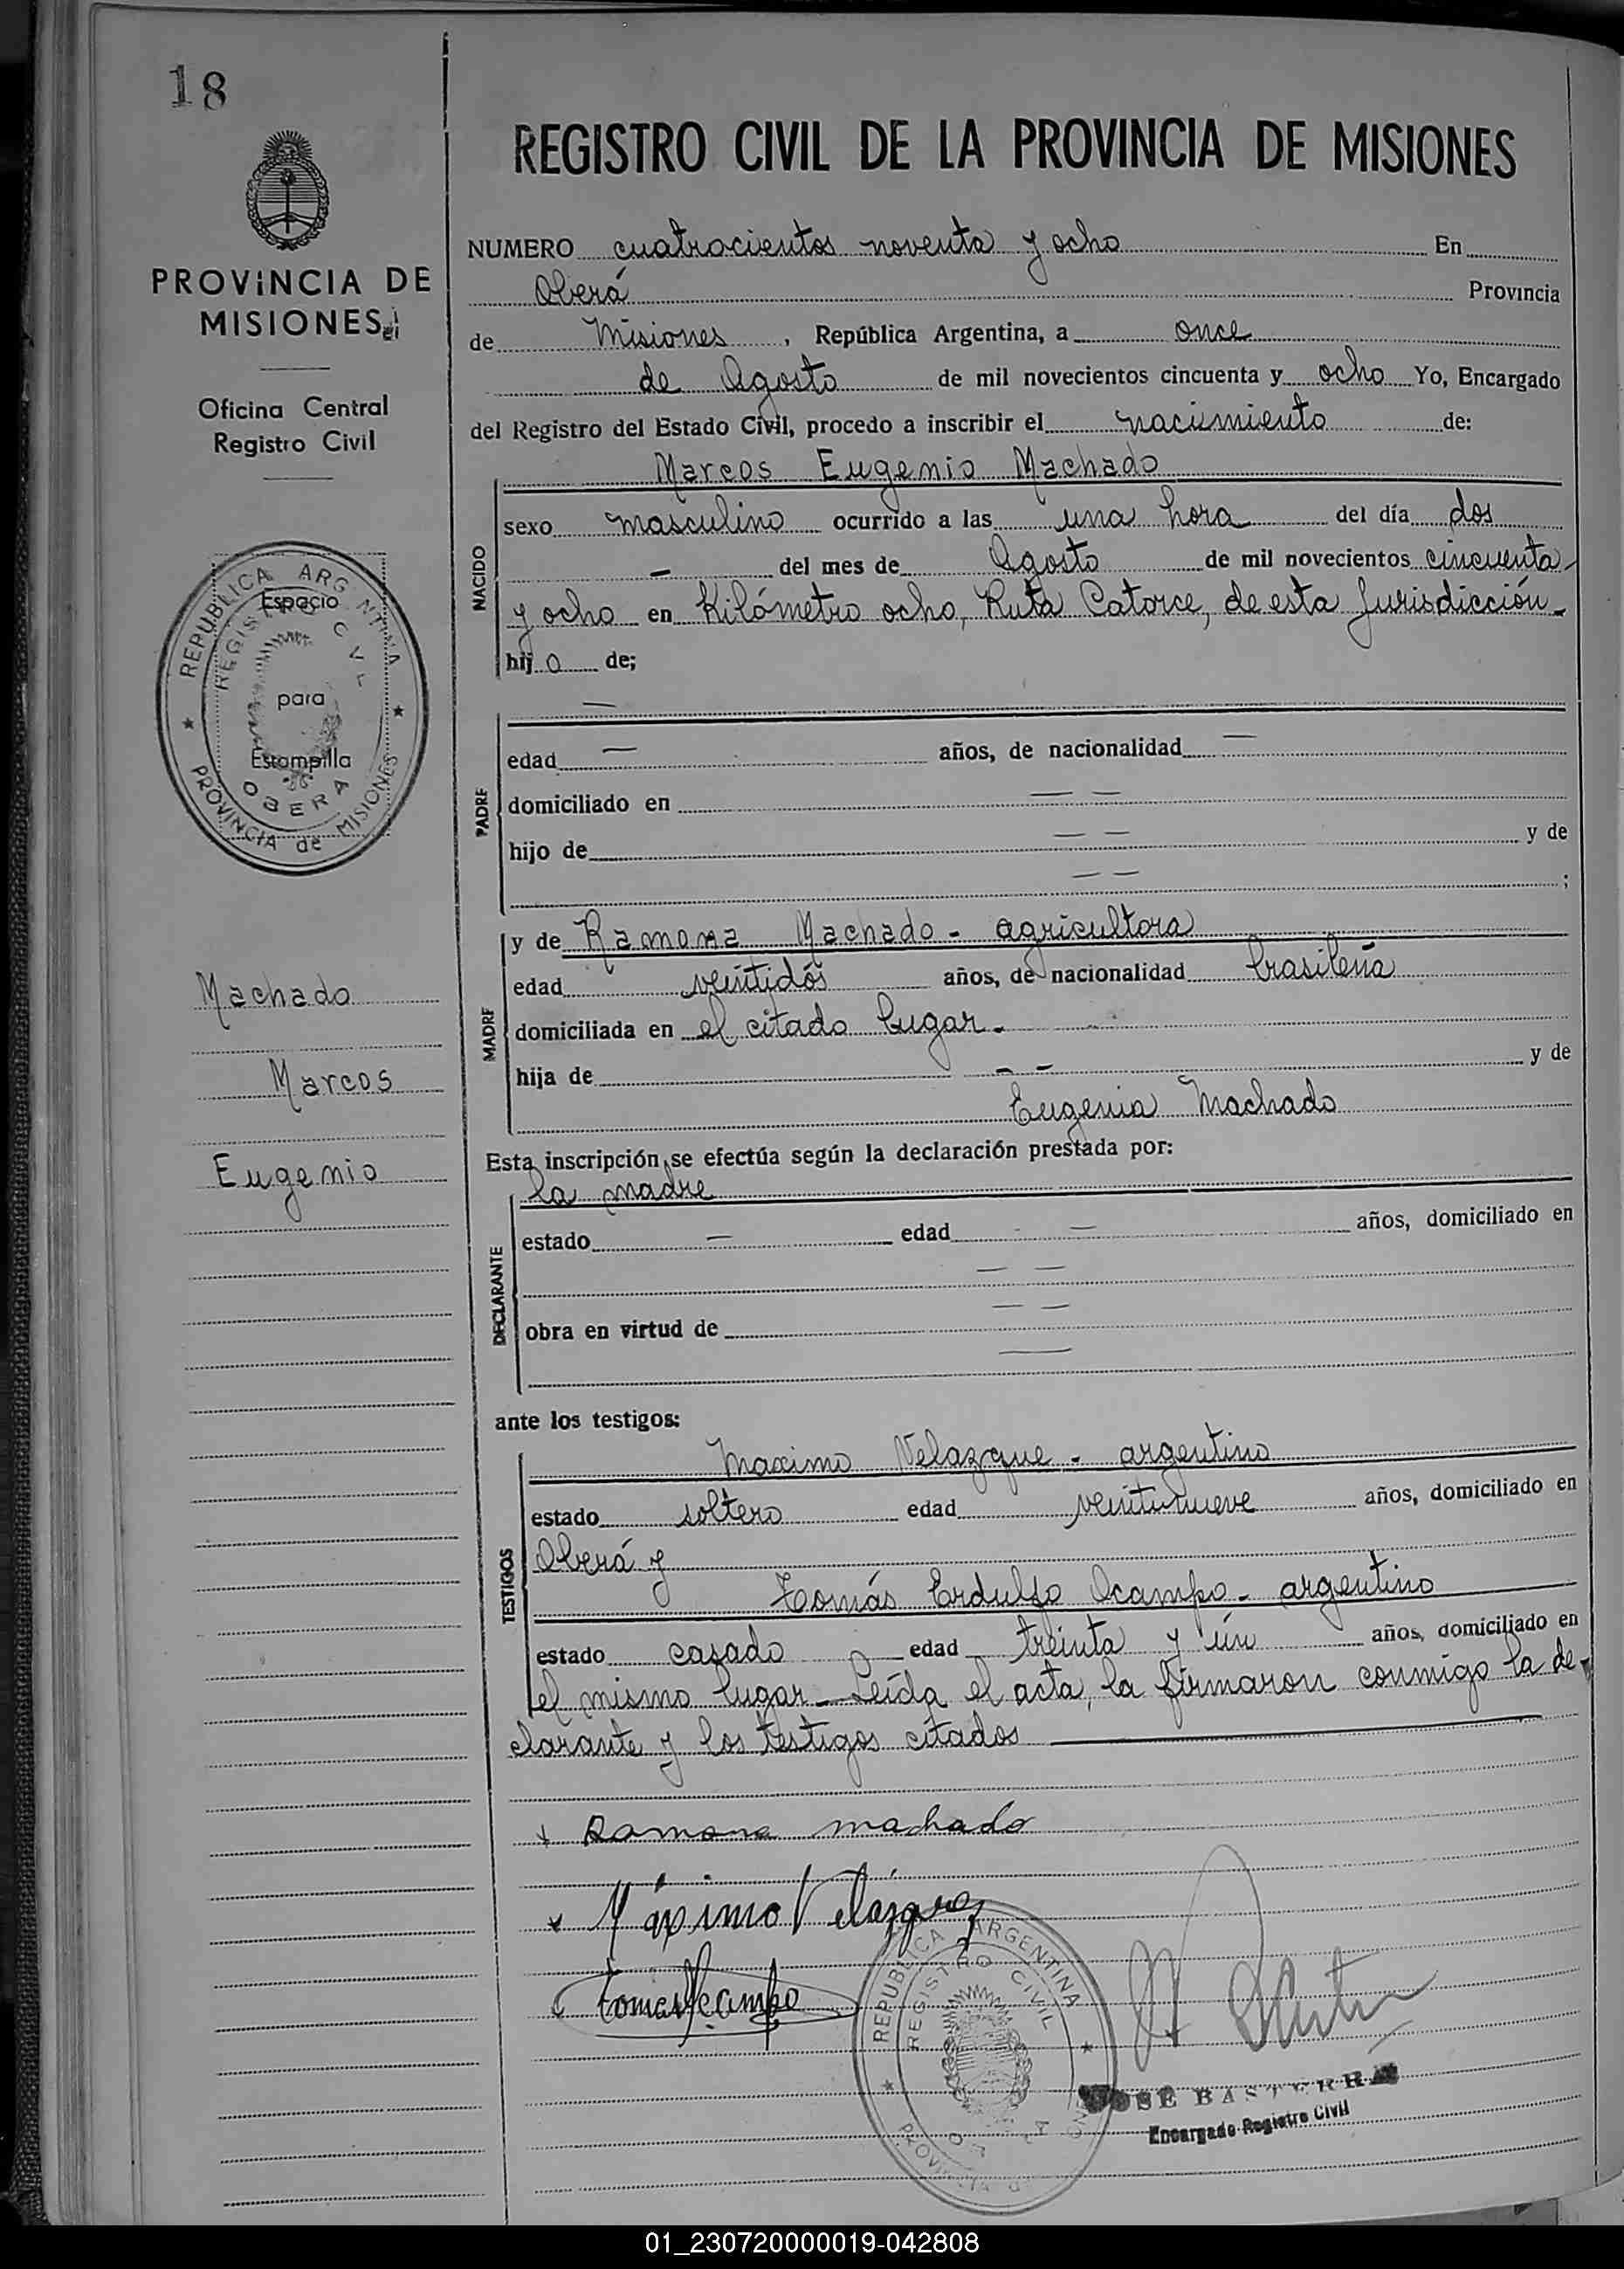 18
PROVINCIA DE
MISIONES
Oficina Central
Registro Civil
REPUBLICA ARGENTINA
REGISTRO CIVIL
Espacio
para
Estampilla
OBERA
PROVINCIA de MISIONES
Machado
Marcos
Eugenio
REGISTRO CIVIL DE LA PROVINCIA DE MISIONES
NUMERO cuatrocientos noventa y ocho En
Oberá Provincia
de Misiones, República Argentina, a once
de Agosto de mil novecientos cincuenta y ocho Yo, Encargado
del Registro del Estado Civil, procedo a inscribir el nacimiento de:
Marcos Eugenio Machado
NACIDO
sexo masculino ocurrido a las una hora del día dos
— del mes de Agosto de mil novecientos cincuenta
y ocho en Kilómetro ocho, Ruta Catorce, de esta Jurisdicción-
hijo de;
—
PADRE
edad — años, de nacionalidad —
domiciliado en — —
hijo de — — y de
— — ;
MADRE
y de Ramona Machado - agricultora
edad veintidós años, de nacionalidad brasileña
domiciliada en el citado lugar.
hija de — — y de
Eugenia Machado
Esta inscripción se efectúa según la declaración prestada por:
la madre
DECLARANTE
estado — edad — años, domiciliado en
— —
obra en virtud de — —
—
ante los testigos:
Maximo Velazque - argentino
TESTIGOS
estado soltero edad veintinueve años, domiciliado en
Oberá y
Tomás Erdulfo Ocampo - argentino
estado casado edad treinta y ún años, domiciliado en
el mismo lugar - Leída el acta, la firmaron conmigo la de-
clarante y los testigos citados
Ramona machado
Máximo Velázquez
Tomas Ocampo
REPUBLICA ARGENTINA
REGISTRO CIVIL
JOSE BASTERRA
Encargado Registro Civil
01_230720000019-042808